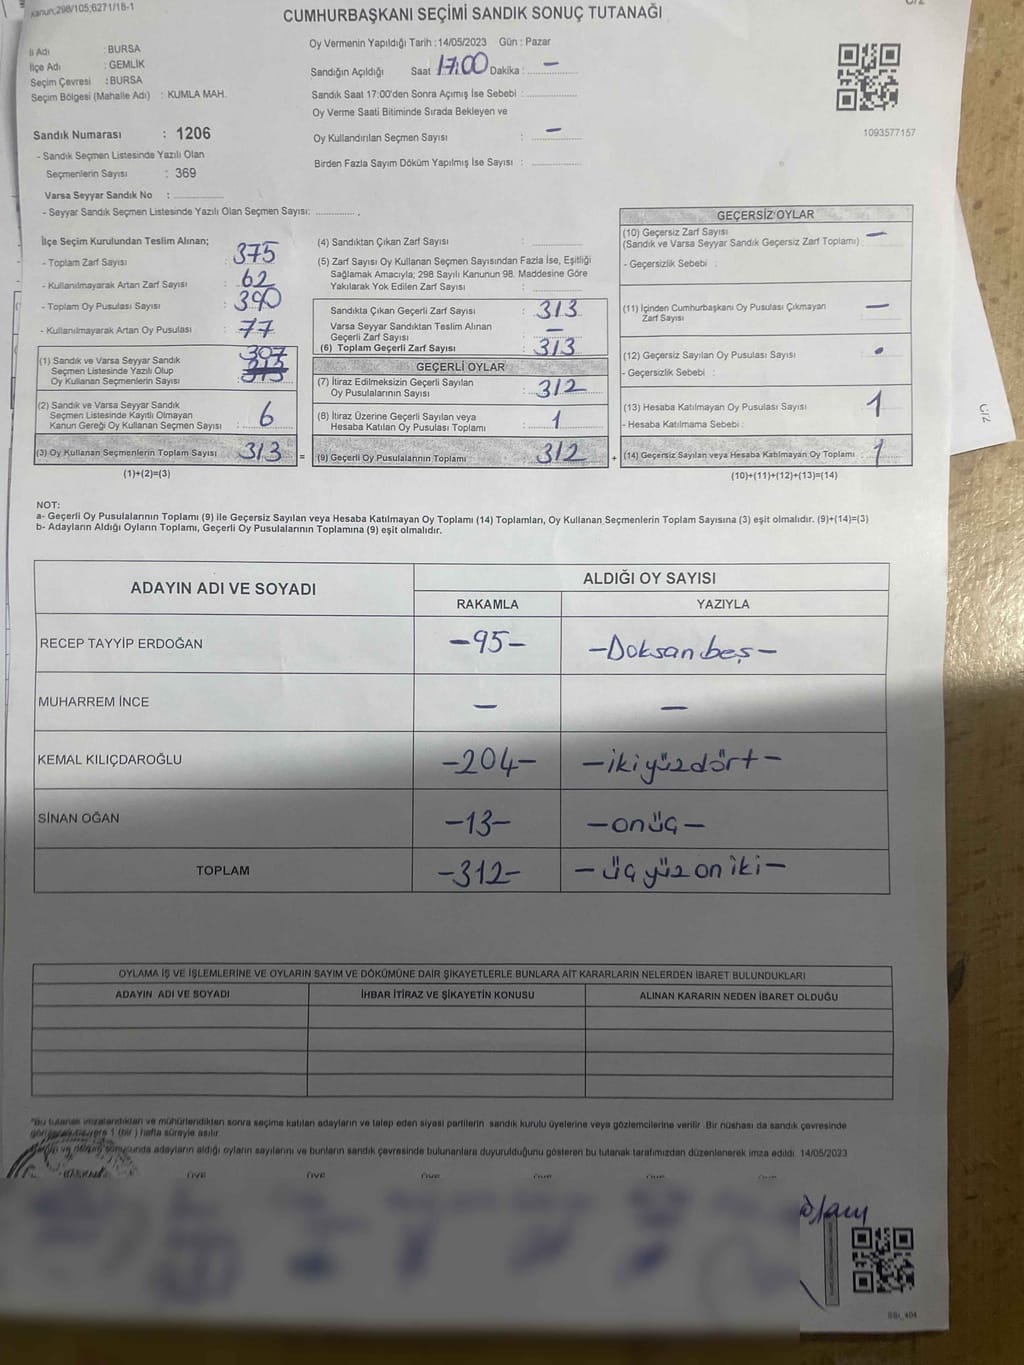 Kanun;298/105;6271/18-1
CUMHURBAŞKANI SEÇİMİ SANDIK SONUÇ TUTANAĞI
İl Adı : BURSA
İlçe Adı : GEMLİK
Seçim Çevresi : BURSA
Seçim Bölgesi (Mahalle Adı) : KUMLA MAH.
Sandık Numarası : 1206
- Sandık Seçmen Listesinde Yazılı Olan
Seçmenlerin Sayısı : 369
Varsa Seyyar Sandık No :
- Seyyar Sandık Seçmen Listesinde Yazılı Olan Seçmen Sayısı:
Oy Vermenin Yapıldığı Tarih : 14/05/2023 Gün : Pazar
Sandığın Açıldığı Saat 17:00 Dakika : —
Sandık Saat 17:00'den Sonra Açımış İse Sebebi :
Oy Verme Saati Bitiminde Sırada Bekleyen ve
Oy Kullandırılan Seçmen Sayısı : —
Birden Fazla Sayım Döküm Yapılmış İse Sayısı :
1093577157
İlçe Seçim Kurulundan Teslim Alınan;
- Toplam Zarf Sayısı : 375
- Kullanılmayarak Artan Zarf Sayısı : 62
- Toplam Oy Pusulası Sayısı : 390
- Kullanılmayarak Artan Oy Pusulası : 77
(1) Sandık ve Varsa Seyyar Sandık
Seçmen Listesinde Yazılı Olup
Oy Kullanan Seçmenlerin Sayısı : 307
(2) Sandık ve Varsa Seyyar Sandık
Seçmen Listesinde Kayıtlı Olmayan
Kanun Gereği Oy Kullanan Seçmen Sayısı : 6
(3) Oy Kullanan Seçmenlerin Toplam Sayısı : 313 =
(1)+(2)=(3)
(4) Sandıktan Çıkan Zarf Sayısı :
(5) Zarf Sayısı Oy Kullanan Seçmen Sayısından Fazla İse, Eşitliği
Sağlamak Amacıyla; 298 Sayılı Kanunun 98. Maddesine Göre
Yakılarak Yok Edilen Zarf Sayısı :
Sandıkta Çıkan Geçerli Zarf Sayısı : 313
Varsa Seyyar Sandıktan Teslim Alınan
Geçerli Zarf Sayısı : —
(6) Toplam Geçerli Zarf Sayısı : 313
GEÇERLİ OYLAR
(7) İtiraz Edilmeksizin Geçerli Sayılan
Oy Pusulalarının Sayısı : 312
(8) İtiraz Üzerine Geçerli Sayılan veya
Hesaba Katılan Oy Pusulası Toplamı : 1
(9) Geçerli Oy Pusulalarının Toplamı : 312 +
GEÇERSİZ OYLAR
(10) Geçersiz Zarf Sayısı
(Sandık ve Varsa Seyyar Sandık Geçersiz Zarf Toplamı) : —
- Geçersizlik Sebebi :
(11) İçinden Cumhurbaşkanı Oy Pusulası Çıkmayan
Zarf Sayısı : —
(12) Geçersiz Sayılan Oy Pusulası Sayısı :
- Geçersizlik Sebebi :
(13) Hesaba Katılmayan Oy Pusulası Sayısı : 1
- Hesaba Katılmama Sebebi :
(14) Geçersiz Sayılan veya Hesaba Katılmayan Oy Toplamı : 1
(10)+(11)+(12)+(13)=(14)
C/2
NOT:
a- Geçerli Oy Pusulalarının Toplamı (9) ile Geçersiz Sayılan veya Hesaba Katılmayan Oy Toplamı (14) Toplamları, Oy Kullanan Seçmenlerin Toplam Sayısına (3) eşit olmalıdır. (9)+(14)=(3)
b- Adayların Aldığı Oyların Toplamı, Geçerli Oy Pusulalarının Toplamına (9) eşit olmalıdır.
ADAYIN ADI VE SOYADI ALDIĞI OY SAYISI
RAKAMLA YAZIYLA
RECEP TAYYİP ERDOĞAN –95– –Doksan beş–
MUHARREM İNCE — —
KEMAL KILIÇDAROĞLU –204– –iki yüz dört–
SİNAN OĞAN –13– –on üç–
TOPLAM –312– –üç yüz on iki–
OYLAMA İŞ VE İŞLEMLERİNE VE OYLARIN SAYIM VE DÖKÜMÜNE DAİR ŞİKAYETLERLE BUNLARA AİT KARARLARIN NELERDEN İBARET BULUNDUKLARI
ADAYIN ADI VE SOYADI İHBAR İTİRAZ VE ŞİKAYETİN KONUSU ALINAN KARARIN NEDEN İBARET OLDUĞU
*Bu tutanak imzalandıktan ve mühürlendikten sonra seçime katılan adayların ve talep eden siyasi partilerin sandık kurulu üyelerine veya gözlemcilerine verilir. Bir nüshası da sandık çevresinde
1 (bir) hafta süreyle asılır.
adayların aldığı oyların sayılarını ve bunların sandık çevresinde bulunanlara duyurulduğunu gösteren bu tutanak tarafımızdan düzenlenerek imza edildi. 14/05/2023
ÜYE ÜYE ÜYE ÜYE ÜYE